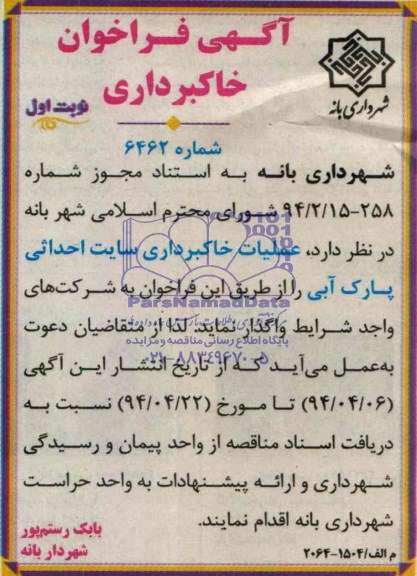 آگهی فراخوان
خاکبرداری
نوبت اول
شهرداری بانه
شماره ۶۴۶۲
شهرداری بانه به استناد مجوز شماره
۲۵۸-۹۴/۲/۱۵ شورای محترم اسلامی شهر بانه
در نظر دارد، عملیات خاکبرداری سایت احداثی
پارک آبی را از طریق این فراخوان به شرکت‌های
ParsNamadData
واجد شرایط واگذار نمایند. لذا از متقاضیان دعوت
پایگاه اطلاع رسانی مناقصه و مزایده
به‌عمل می‌آید که از تاریخ انتشار این آگهی
۰۲۱-۸۸۳۴۹۶۷۰-۵
(۹۴/۰۴/۰۶) تا مورخ (۹۴/۰۴/۲۲) نسبت به
دریافت اسناد مناقصه از واحد پیمان و رسیدگی
شهرداری و ارائه پیشنهادات به واحد حراست
شهرداری بانه اقدام نمایند.
بابک رستم‌پور
شهردار بانه
م الف/۱۵۰۴-۲۰۶۴